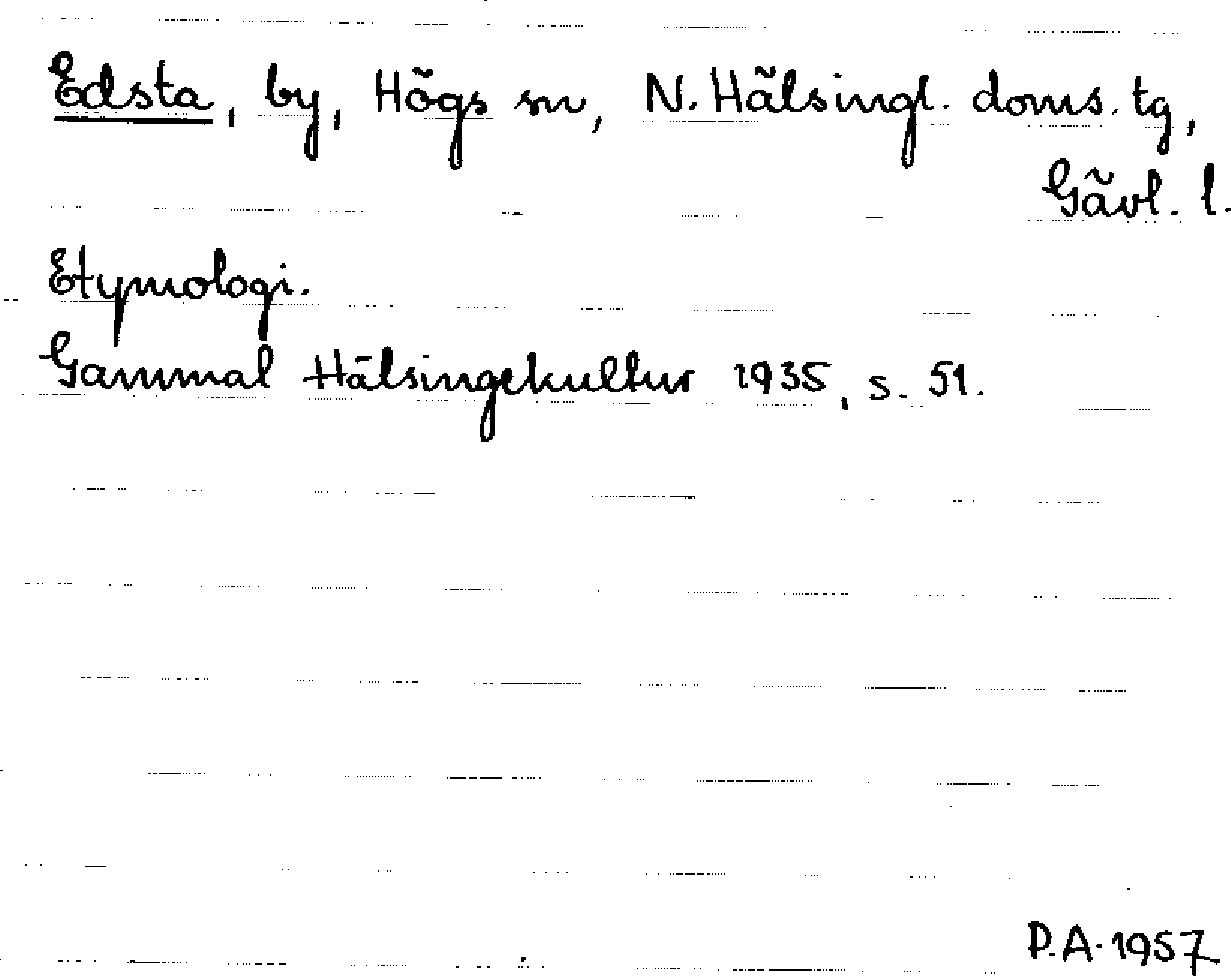 Edsta, by, Högs sn, N. Hälsingl. doms. tg,
Gävl. l.
Etymologi.
Gammal Hälsingekultur 1935, s. 51.
P.A. 1957